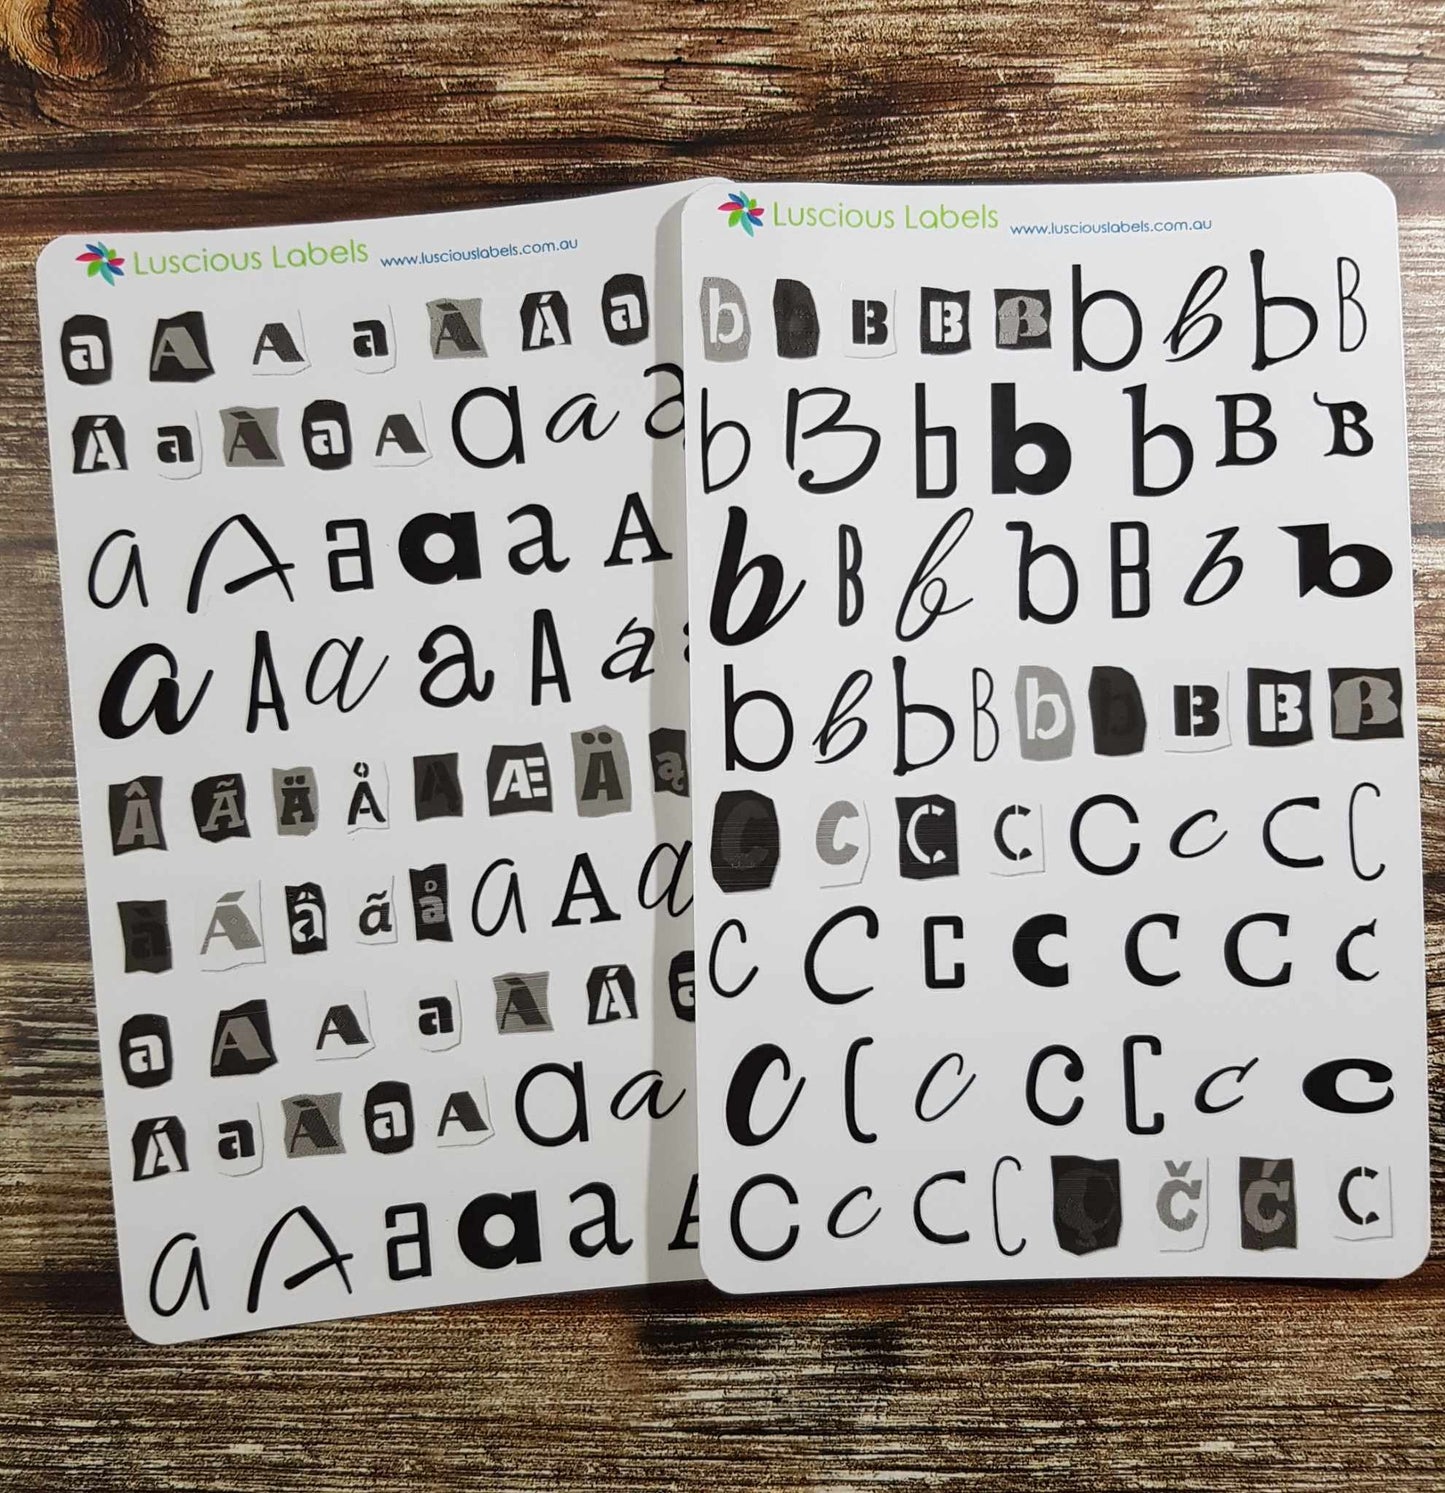 Luscious Labels www.lusciouslabels.com.au
a A A a À Á a
Á a À a A a a a
a A a a a A
a A a a A a
Â Ã Ä Å A Æ Ä ą
à Á â ã å a A a
a A A a À Á a
Á a À a A a a
a A a a a A
Luscious Labels www.lusciouslabels.com.au
b B B B b b b B
b B b b b B B
b B b b B b b
b b b B b b B B B
C C C C C c C C
C C C C C C C
C C C C C C C
C c C C ç č ć C